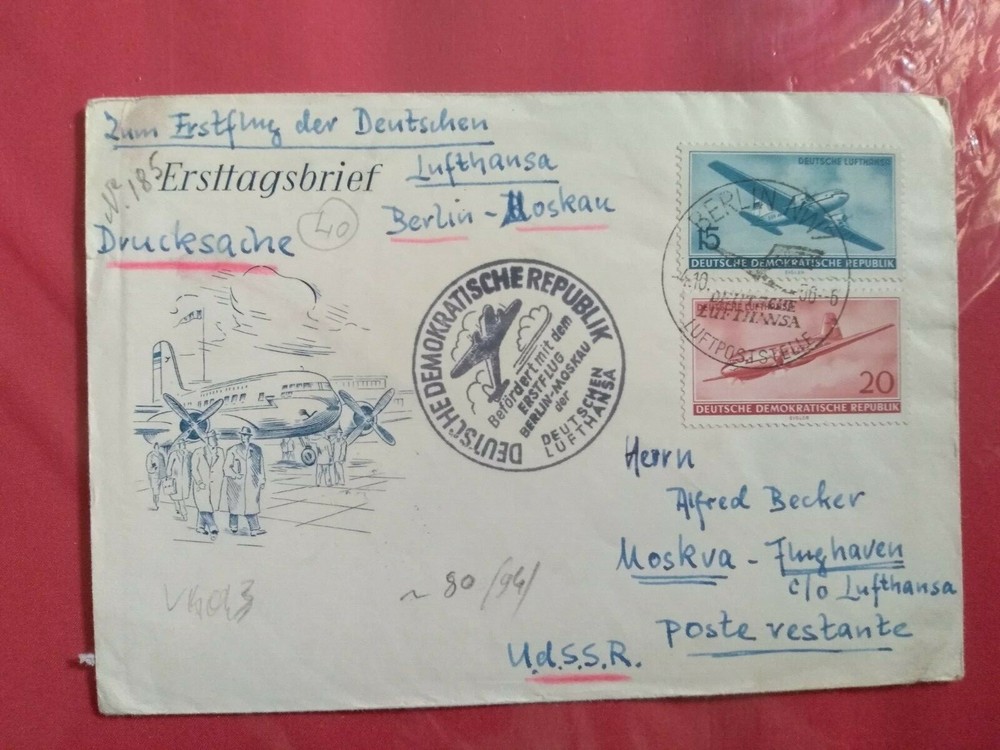 Zum Erstflug der Deutschen
Lufthansa
Berlin - Moskau
Nº 185
Ersttagsbrief
40
Drucksache
DEUTSCHE LUFTHANSA
15
DEUTSCHE DEMOKRATISCHE REPUBLIK
BERLIN
4.10. 56.-6
DEUTSCHE
LUFTHANSA
LUFTPOSTSTELLE
20
DEUTSCHE DEMOKRATISCHE REPUBLIK
DEUTSCHE DEMOKRATISCHE REPUBLIK
Befördert mit dem
ERSTFLUG
BERLIN-MOSKAU
der
DEUTSCHEN
LUFTHANSA
Herrn
Alfred Becker
Moskva - Flughaven
c/o Lufthansa
poste restante
U.d.S.S.R.
~ 80 (94)